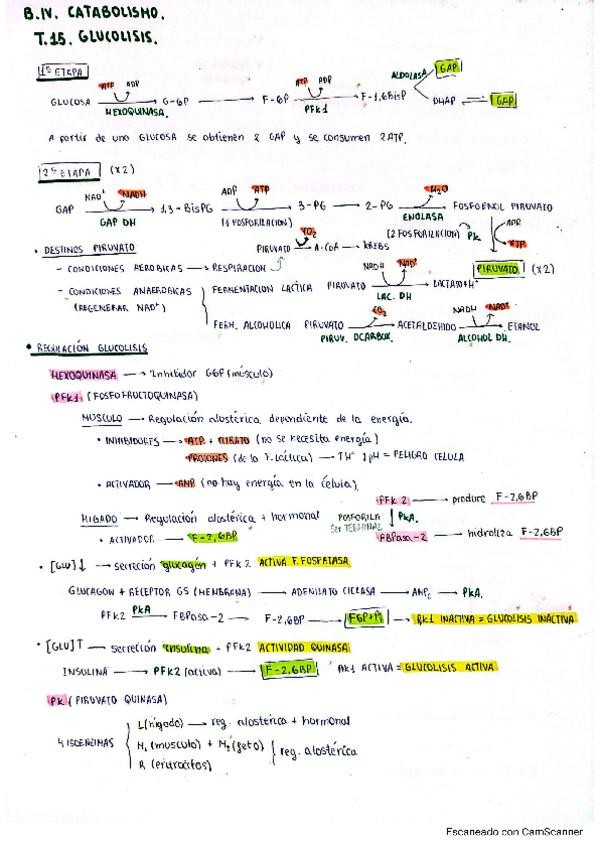 B.IV. CATABOLISMO.
T.15. GLUCOLISIS.
1ª ETAPA
ATP ADP ATP ADP ALDOLASA GAP
GLUCOSA → G-6P → F-6P → F-1,6BisP
HEXOQUINASA. PFK1 DHAP GAP
A partir de una GLUCOSA se obtienen 2 GAP y se consumen 2 ATP.
2ª ETAPA (x2)
NAD⁺ NADH ADP ATP H₂O
GAP → 1,3-BisPG → 3-PG → 2-PG → FOSFOENOL PIRUVATO
GAP DH (1 FOSFORILACION) ENOLASA
(2 FOSFORILACION) PK ADP ATP
• DESTINOS PIRUVATO
CO₂
PIRUVATO → A-COA → KREBS
- CONDICIONES AEROBICAS → RESPIRACION
PIRUVATO (x2)
NADH NAD⁺
- CONDICIONES ANAEROBICAS FERMENTACION LACTICA PIRUVATO → LACTATO+H⁺
(REGENERAR NAD⁺) LAC. DH
CO₂ NADH NAD⁺
FERM. ALCOHOLICA PIRUVATO → ACETALDEHIDO → ETANOL
PIRUV. DCARBOX. ALCOHOL DH.
• REGULACIÓN GLUCOLISIS
HEXOQUINASA → Inhibidor G6P (músculo)
PFK1 (FOSFOFRUCTOQUINASA)
MUSCULO → Regulación alostérica dependiente de la energía.
• INHIBIDORES → ATP + CITRATO (no se necesita energía)
PROTONES (de la F. láctica) → ↑H⁺ ↓pH = PELIGRO CELULA
• ACTIVADOR → AMP (no hay energía en la célula).
PFK 2 → produce F-2,6BP
HIGADO → Regulación alostérica + hormonal FOSFORILA PKA.
• ACTIVADOR → F-2,6BP
FBPasa-2 → hidroliza F-2,6BP
• [GLU]↓ → secreción glucagón + PFK2 ACTIVA F. FOSFATASA
GLUCAGON + RECEPTOR GS (MEMBRANA) → ADENILATO CICLASA → AMPc → PKA.
PFK2 PKA → FBPasa-2 → F-2,6BP → F6P+Pi → PFK1 INACTIVA = GLUCOLISIS INACTIVA
• [GLU]↑ → secreción insulina - PFK2 ACTIVIDAD QUINASA
INSULINA → PFK2 (activa) → F-2,6BP PFK1 ACTIVA = GLUCOLISIS ACTIVA
PK (PIRUVATO QUINASA)
L (hígado) → reg. alostérica + hormonal
4 ISOENZIMAS M₁ (musculo) + M₂ (feto) reg. alostérica
R (eritrocitos)
Escaneado con CamScanner